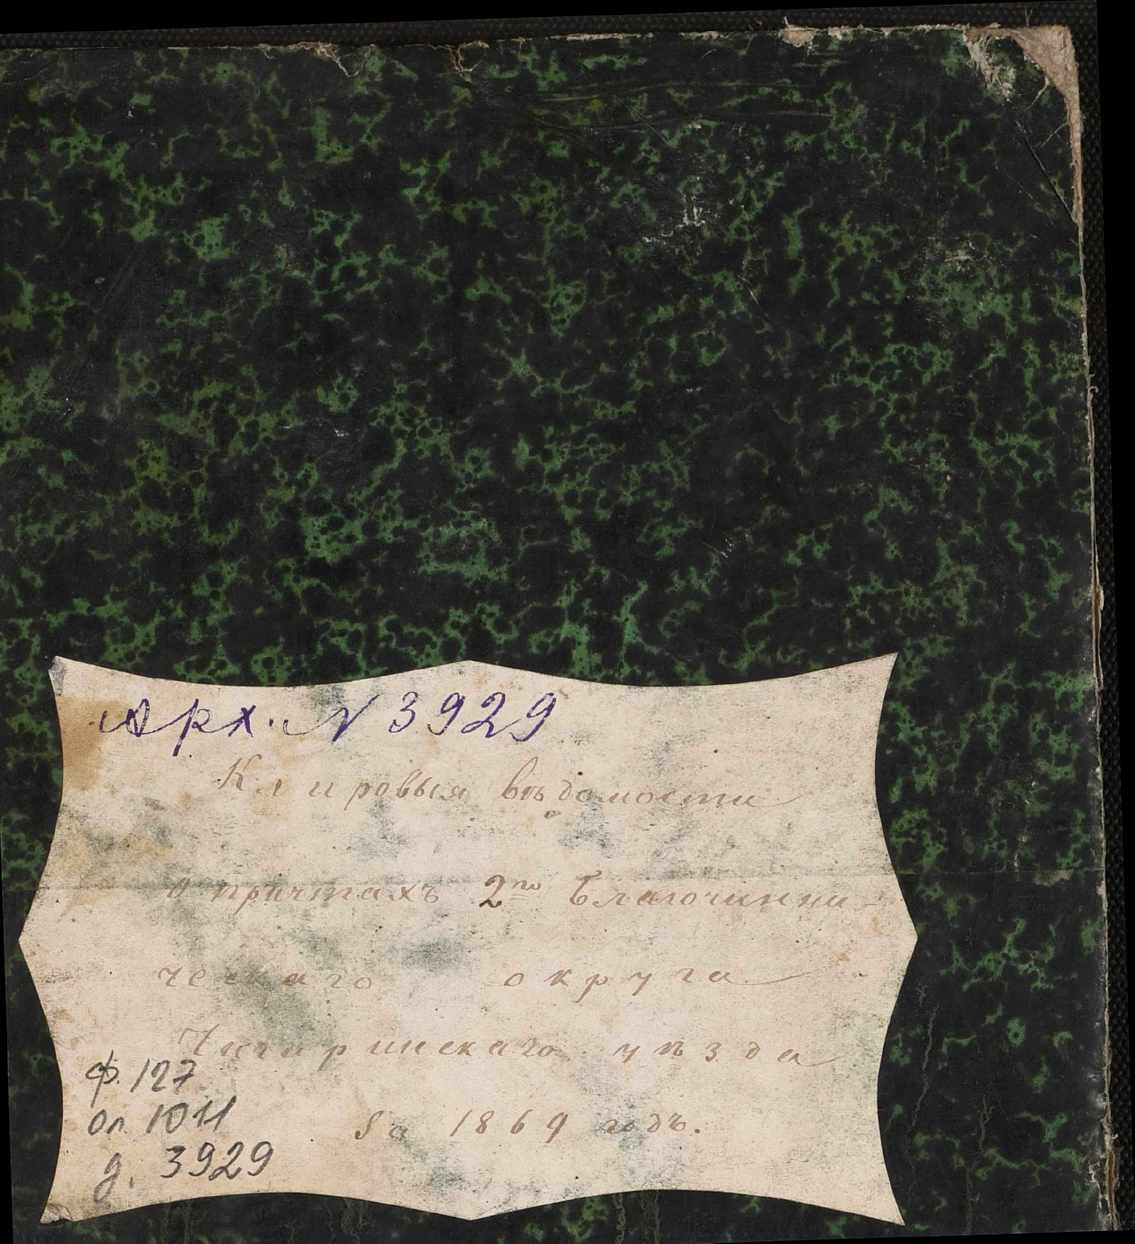 Арх. № 3929
Клировыя вѣдомости
о причтахъ 2го Благочинни-
ческаго округа
Чигиринскаго уѣзда
За 1869 годъ.
ф. 127
оп. 1011
д. 3929